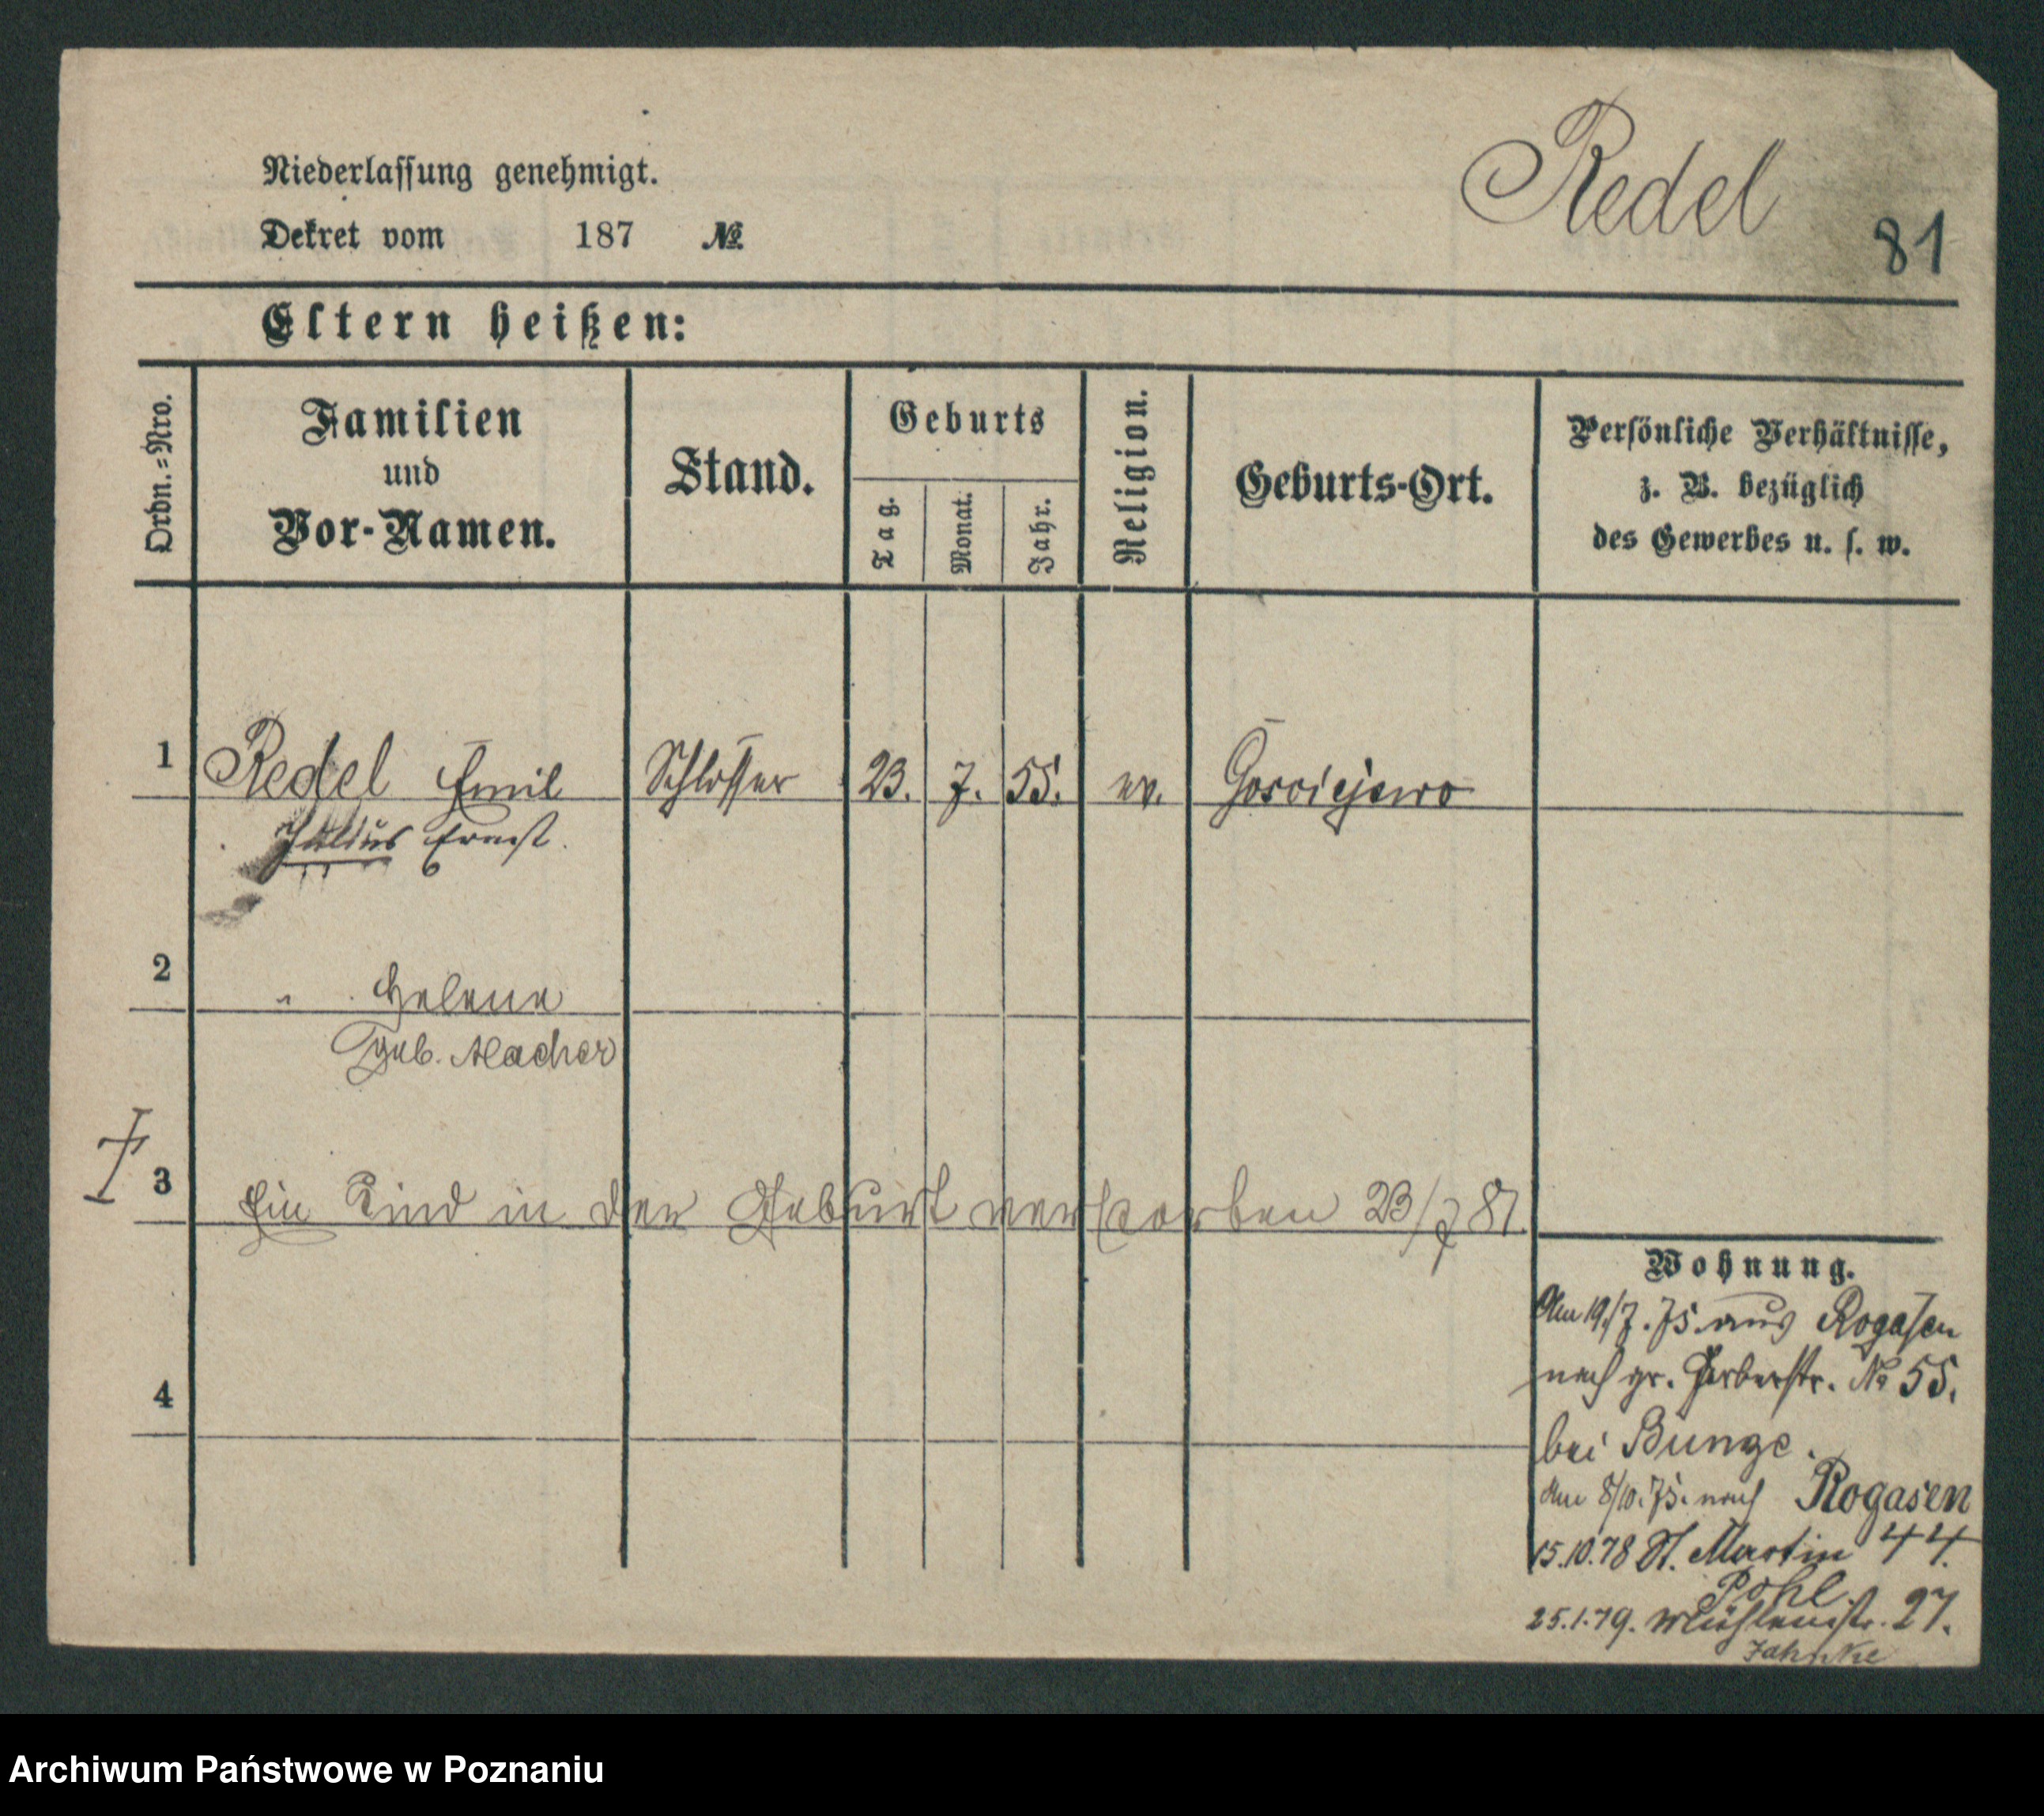 Niederlassung genehmigt.
Redel
Dekret vom 187 №
81
Eltern heißen:
Ordn.=Nro.
Familien
und
Vor-Namen.
Stand.
Geburts
Tag.
Monat.
Jahr.
Religion.
Geburts-Ort.
Persönliche Verhältnisse,
z. B. bezüglich
des Gewerbes u. s. w.
1 Redel Emil Schlosser 23. 7. 55. ev. Gosciejewo
Julius Ernst.
2 " Helene
geb. Macher
3 Ein Kind in der Geburt verstorben 23/7 81.
4
Wohnung.
Am 19/7. 75. aus Rogasen
nach gr. Gerberstr. № 55.
bei Bunge.
Am 8/10. 75. nach Rogasen
15.10.78 St. Martin 44.
Pohl.
25.1.79. Mühlenstr. 27.
Jahnke
Archiwum Państwowe w Poznaniu